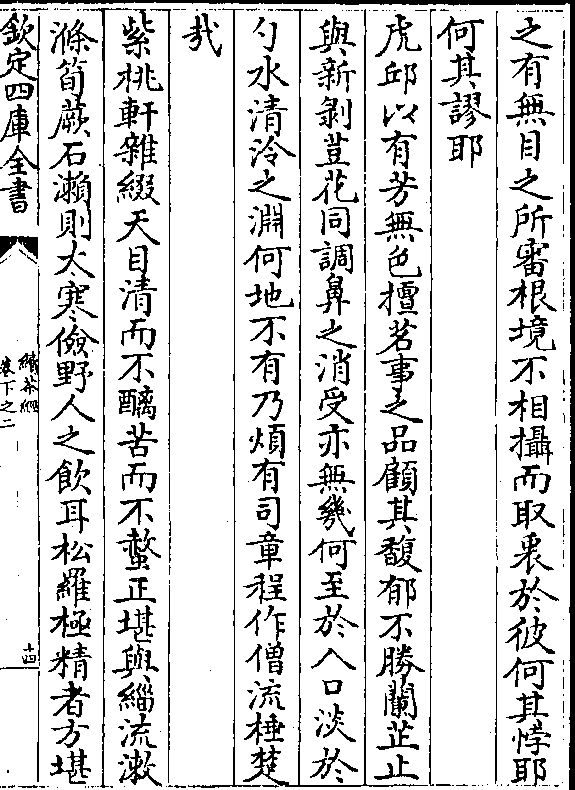 之有無目之所審根境不相攝而取衷於彼何其悖耶
何其謬耶
虎邱以有芳無色擅茗事之品顧其馥郁不勝蘭芷止
與新剝荳花同調鼻之消受亦無幾何至於入口淡於
勺水清泠之淵何地不有乃煩有司章程作僧流棰楚
哉
紫桃軒雜綴天目清而不醨苦而不螫正堪與緇流漱
滌筍蕨石瀨則太寒儉野人之飲耳松羅極精者方堪
欽定四庫全書
續茶經
卷下之二
十四